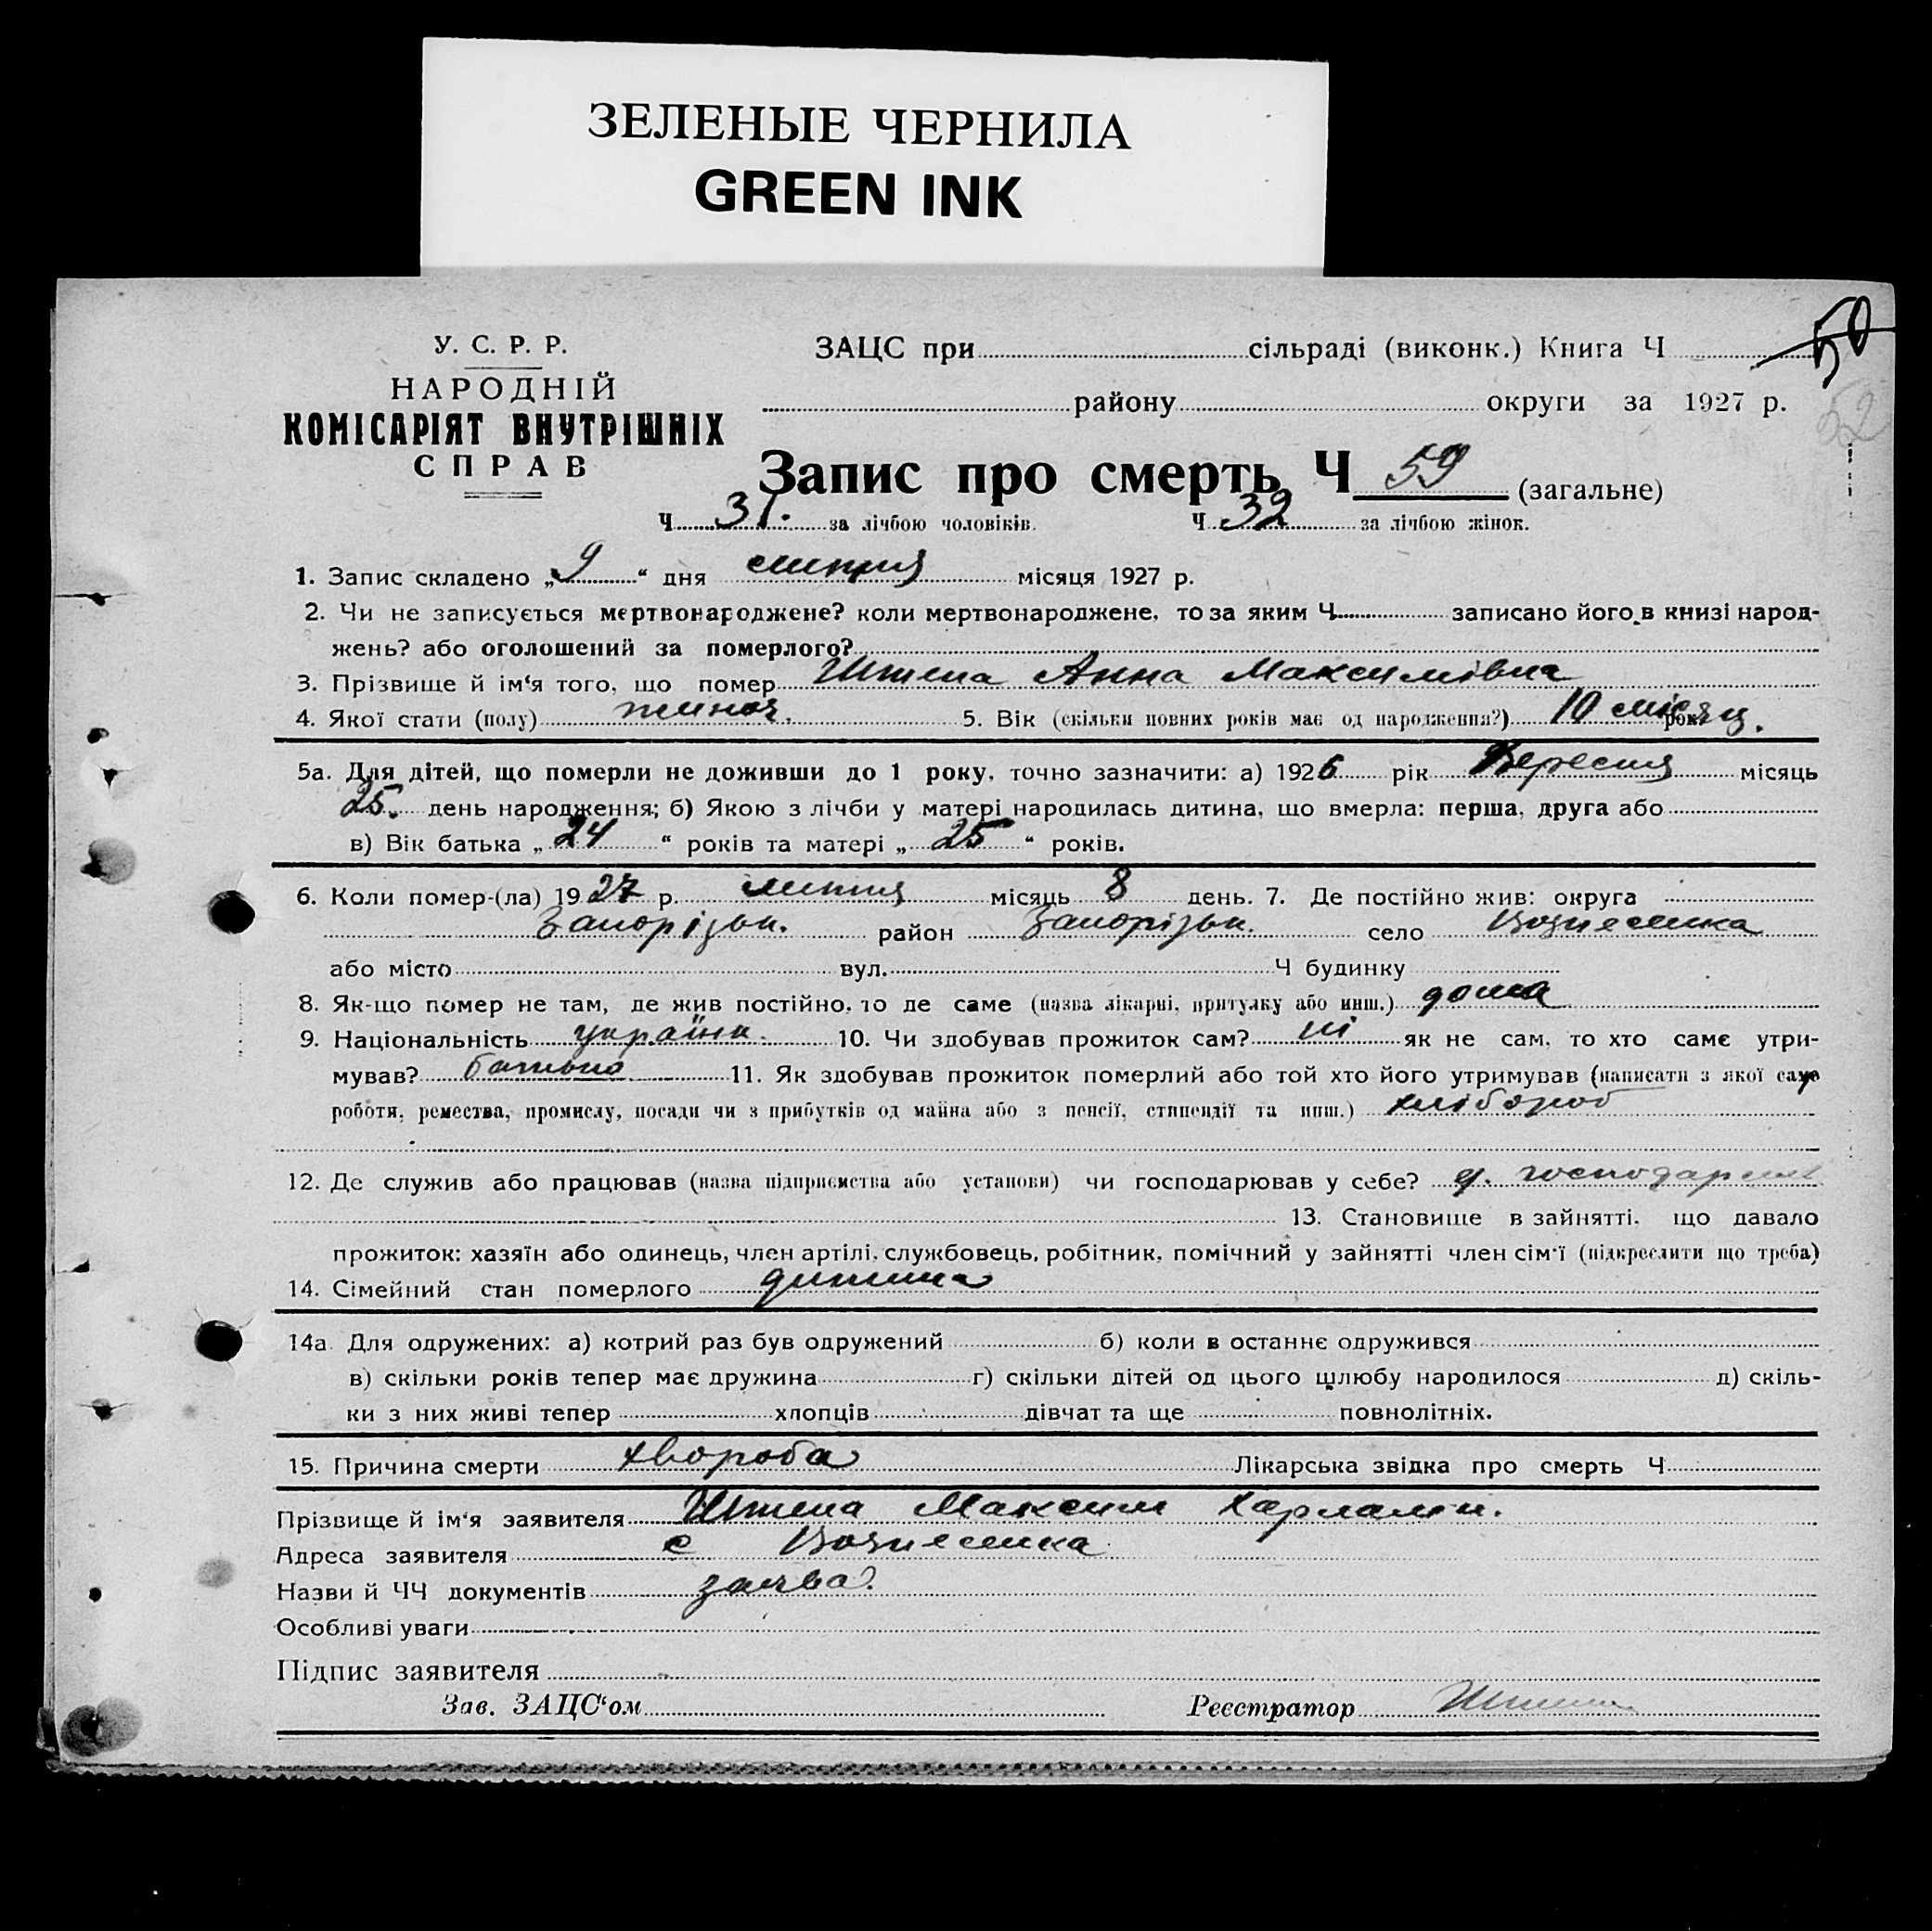 ЗЕЛЕНЫЕ ЧЕРНИЛА
GREEN INK
У. С. Р. Р.
НАРОДНІЙ
КОМІСАРІЯТ ВНУТРІШНІХ
СПРАВ
ЗАЦС при сільраді (виконк.) Книга Ч 50
району округи за 1927 р.
52
Запис про смерть Ч 59 (загальне)
Ч 31. за лічбою чоловіків. Ч 32 за лічбою жінок.
1. Запис складено „9“ дня липня місяця 1927 р.
2. Чи не записується мертвонароджене? коли мертвонароджене, то за яким Ч записано його в книзі народ-
жень? або оголошений за померлого?
3. Прізвище й ім‘я того, що помер Штепа Анна Максимівна
4. Якої стати (полу) жіноч. 5. Вік (скільки повних років має од народження?) 10 місяц. рок.
5а. Для дітей, що померли не доживши до 1 року, точно зазначити: а) 1926 рік Вересня місяць
25. день народження; б) Якою з лічби у матері народилась дитина, що вмерла: перша, друга або
в) Вік батька „24“ років та матері „25“ років.
6. Коли помер-(ла) 1927 р. липня місяць 8 день. 7. Де постійно жив: округа
Запорізьк. район Запорізьк. село Вознесенка
або місто вул. Ч будинку
8. Як-що помер не там, де жив постійно, то де саме (назва лікарні, притулку або инш.) дома
9. Національність україн. 10. Чи здобував прожиток сам? ні як не сам, то хто саме утри-
мував? батько 11. Як здобував прожиток померлий або той хто його утримував (написати з якої саме
роботи, ремества, промислу, посади чи з прибутків од майна або з пенсії, стипендії та инш.) хлібороб
12. Де служив або працював (назва підприємства або установи) чи господарював у себе? господарстві
13. Становище в зайнятті, що давало
прожиток: хазяїн або одинець, член артілі, службовець, робітник, помічний у зайнятті член сім‘ї (підкреслити що треба)
14. Сімейний стан померлого дитина
14а. Для одружених: а) котрий раз був одружений б) коли в останнє одружився
в) скільки років тепер має дружина г) скільки дітей од цього шлюбу народилося д) скіль-
ки з них живі тепер хлопців дівчат та ще повнолітніх.
15. Причина смерти хвороба Лікарська звідка про смерть Ч
Прізвище й ім‘я заявителя Штепа Максим Харламп.
Адреса заявителя с Вознесенка
Назви й ЧЧ документів заява.
Особливі уваги
Підпис заявителя
Зав. ЗАЦС‘ом Реєстратор